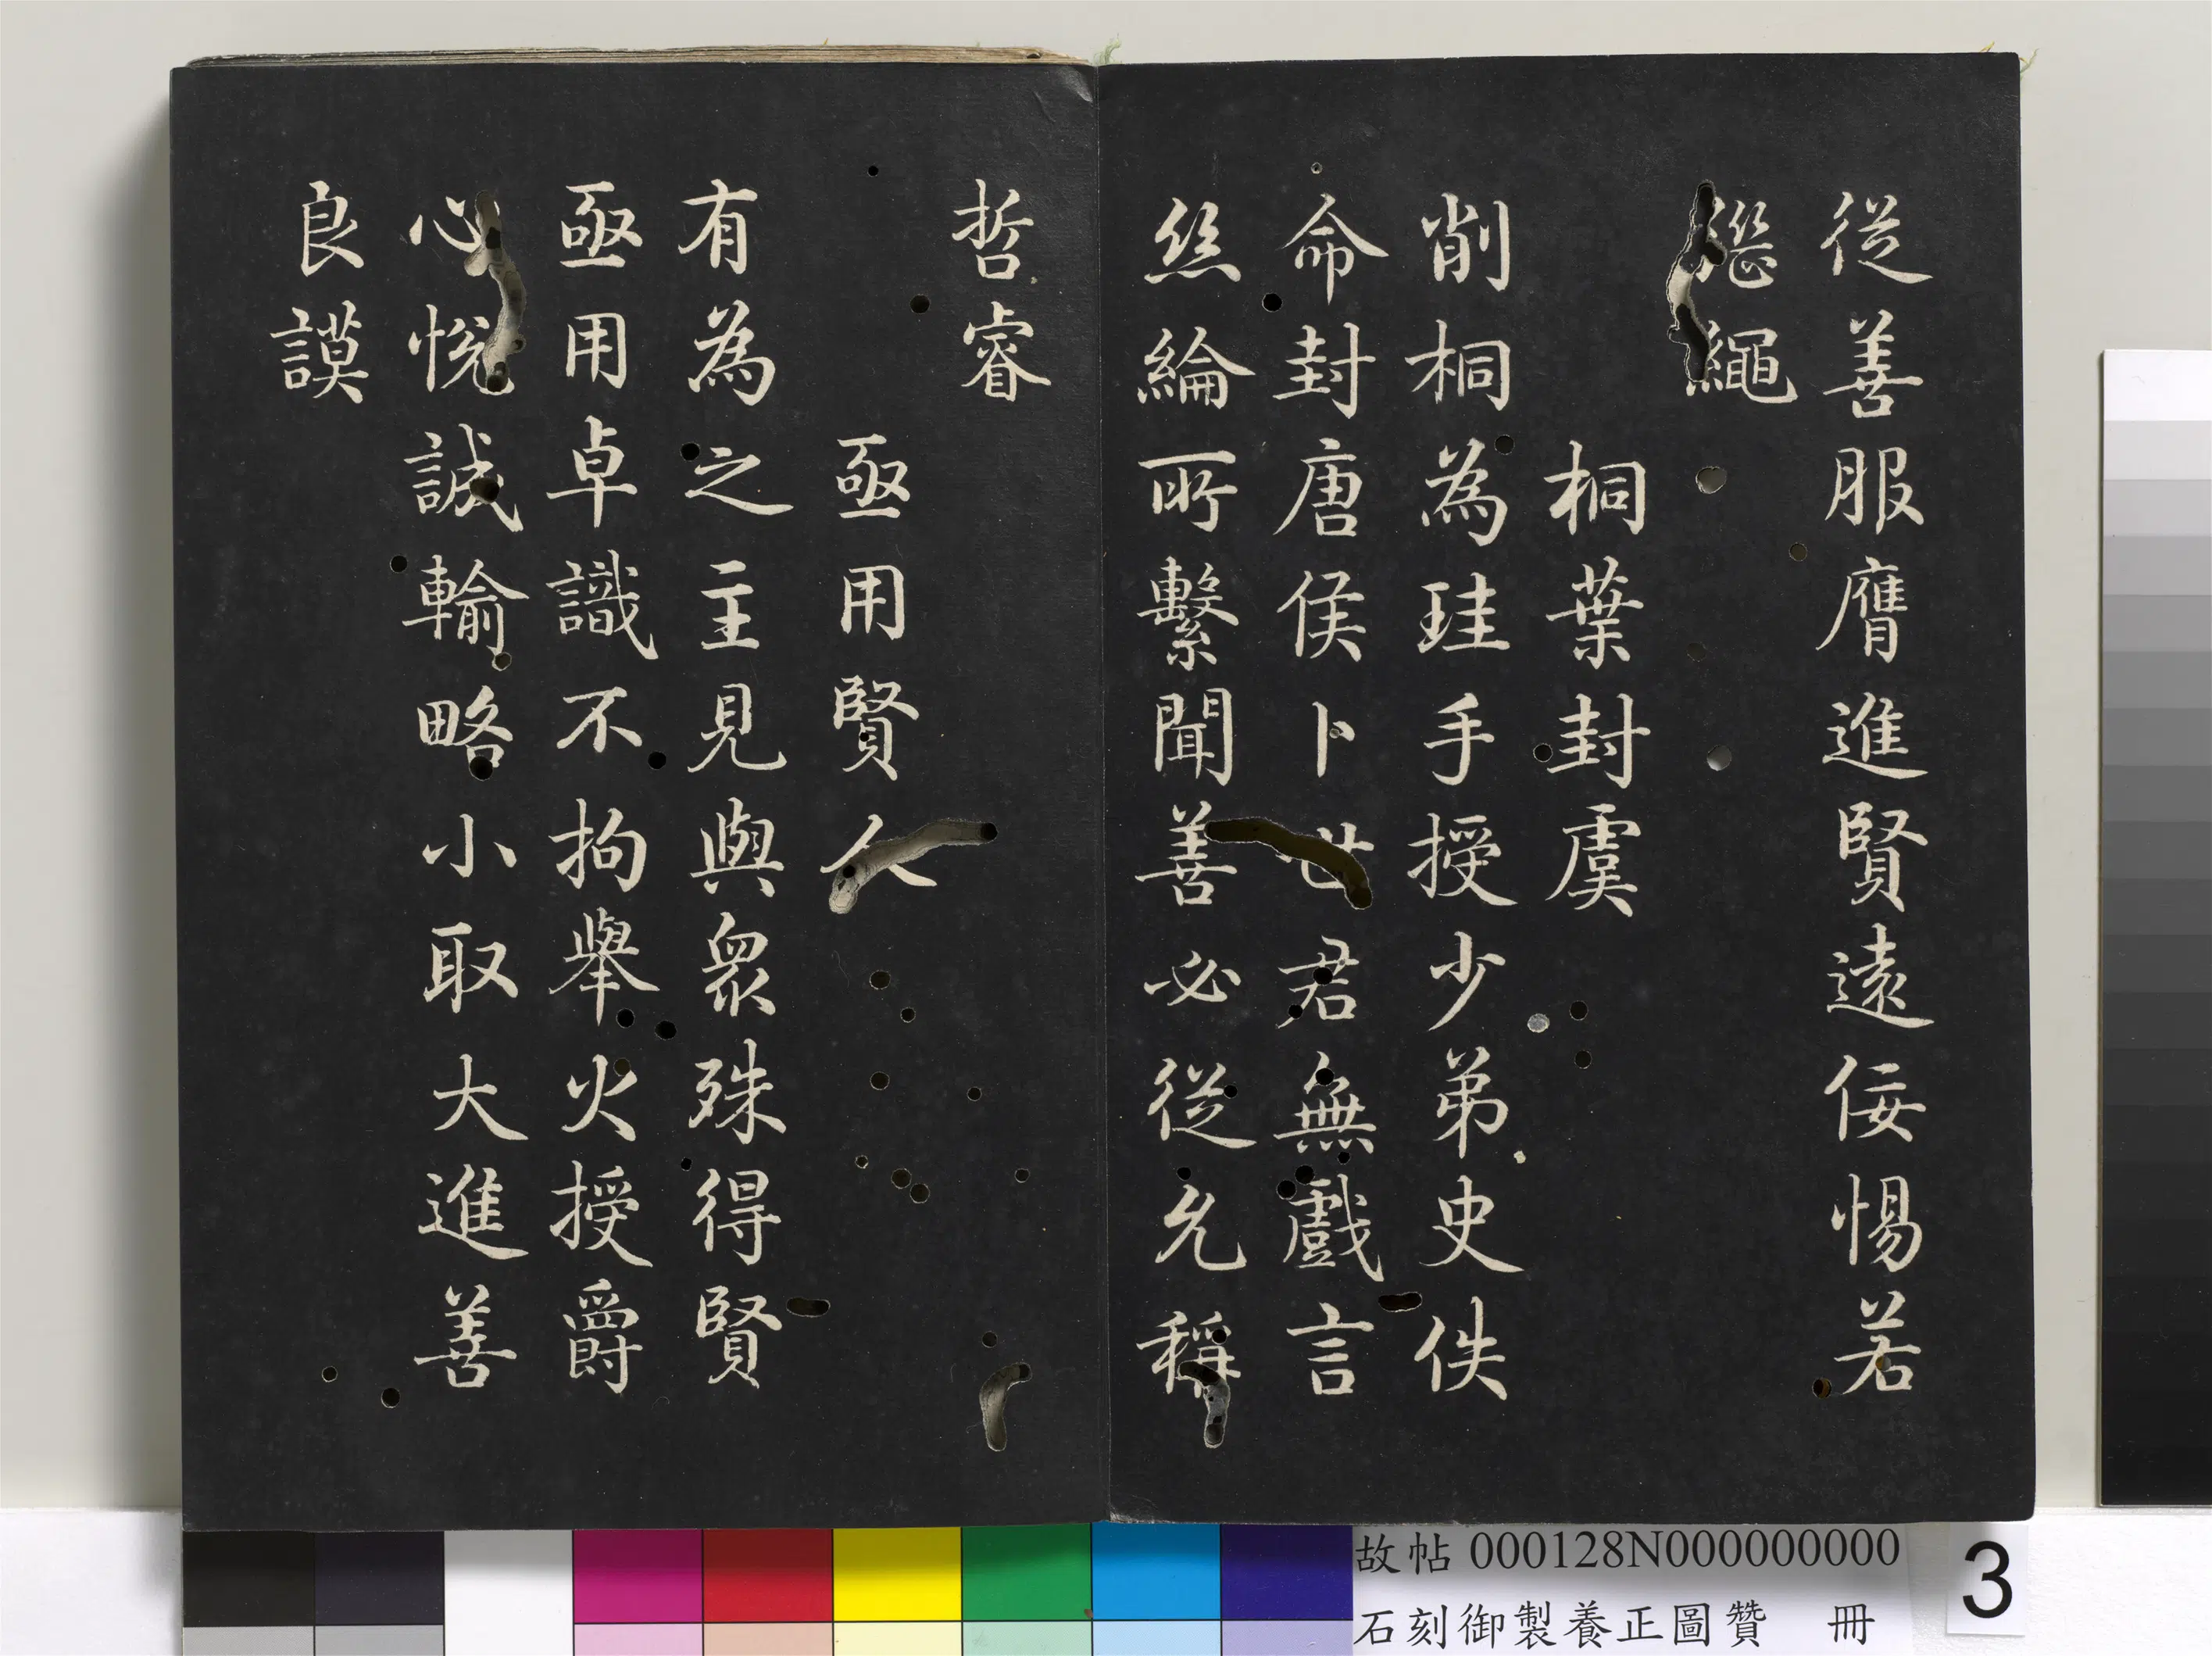 從善服膺進賢遠佞惕若
愆繩
桐葉封虞
削桐為珪手授少弟史佚
命封唐侯卜世君無戲言
絲綸所繫聞善必從允稱
哲睿
亟用賢人
有為之主見與衆殊得賢
亟用卓識不拘舉火授爵
心悅誠輸略小取大進善
良謨
故帖 000128N000000000
石刻御製養正圖贊 冊
3